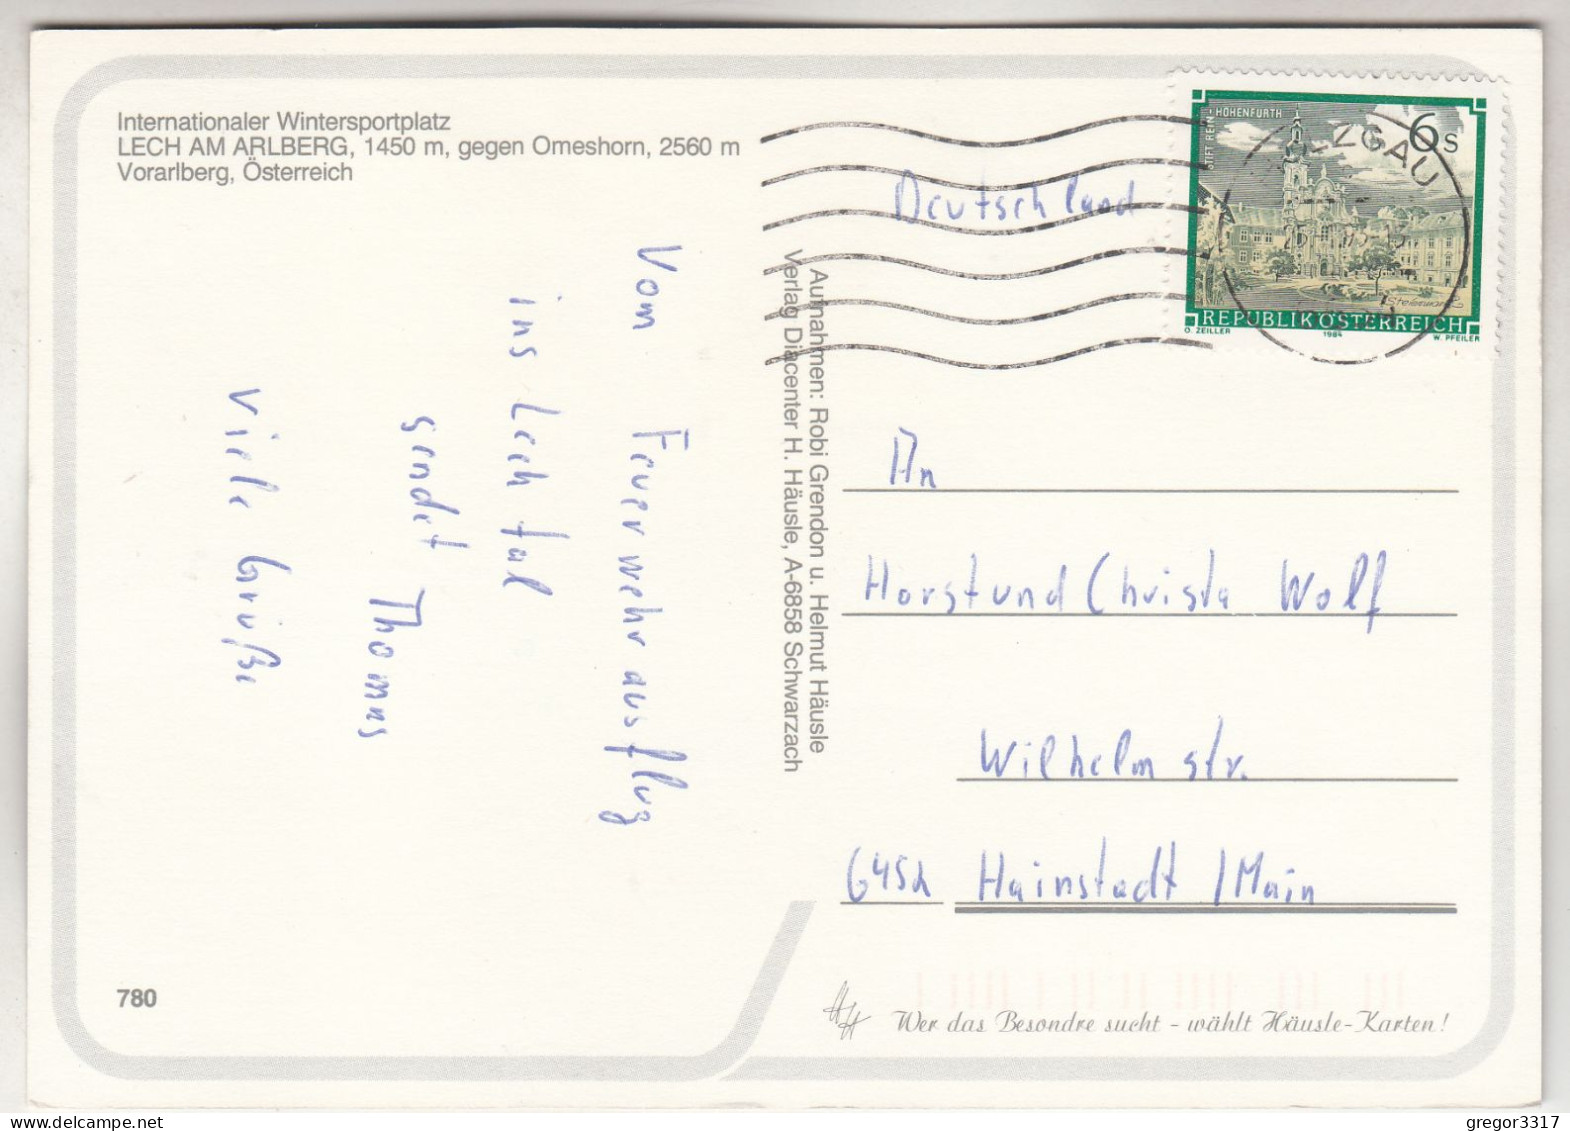 Internationaler Wintersportplatz
LECH AM ARLBERG, 1450 m, gegen Omeshorn, 2560 m
Vorarlberg, Österreich
Vom Feuerwehrausflug
ins Lechtal
sendet Thomas
viele Grüße
Aufnahmen: Robi Grendon u. Helmut Häusle
Verlag Diacenter H. Häusle, A-6858 Schwarzach
Deutschland
STIFT REIN-HOHENFURTH
6 S
REPUBLIK ÖSTERREICH
O. ZEILLER 1984 W. PFEILER
An
Horst und Christa Wolf
Wilhelmstr.
6452 Hainstadt / Main
780
HH
Wer das Besondre sucht - wählt Häusle-Karten!
gregor3317